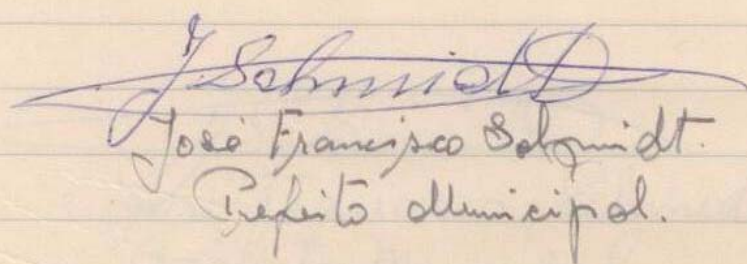 J Schmidt
José Francisco Schmidt.
Prefeito Municipal.